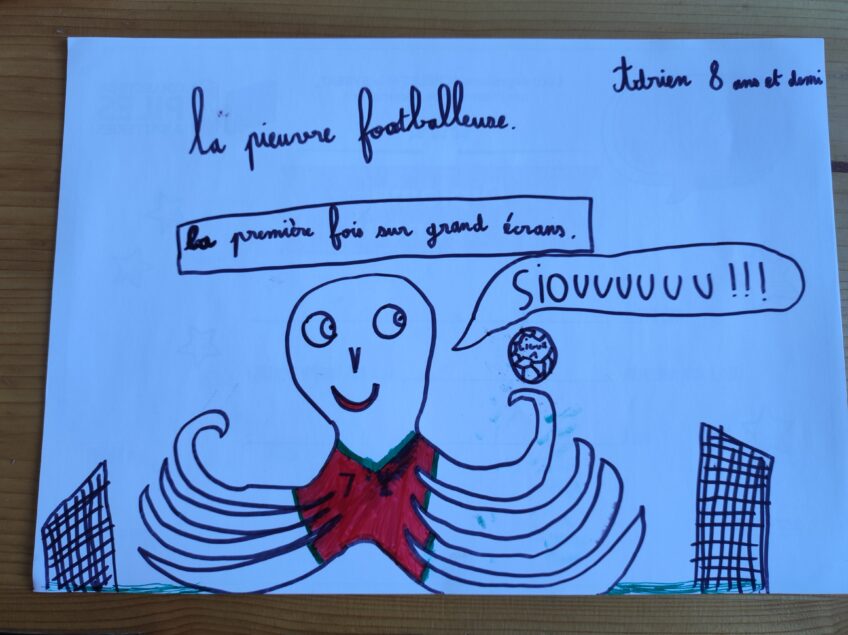 Adrien 8 ans et demi
la pieuvre footballeuse.
La première fois sur grand écrans.
SiOUUUUUU !!!
7